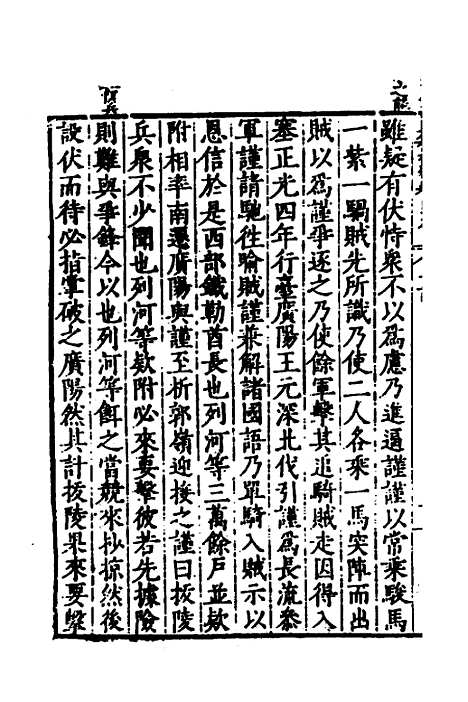 雖疑有伏恃衆不以爲慮乃進逼謹謹以常乘駿馬
一紫一騧賊先所識乃使二人各乘一馬突陣而出
賊以爲謹爭逐之乃使餘軍擊其追騎賊走因得入
塞正光四年行臺廣陽王元深北伐引謹爲長流叅
軍謹請馳往喻賊謹兼解諸國語乃單騎入賊示以
恩信於是西部鐵勒酋長也列河等三萬餘戶並欵
附相率南遷廣陽與謹至折郭嶺迎接之謹曰拔陵
兵衆不少聞也列河等欵附必來要擊彼若先據險
則難與爭鋒今以也列河等餌之當競來抄掠然後
設伏而待必指掌破之廣陽然其計拔陵果來要擊